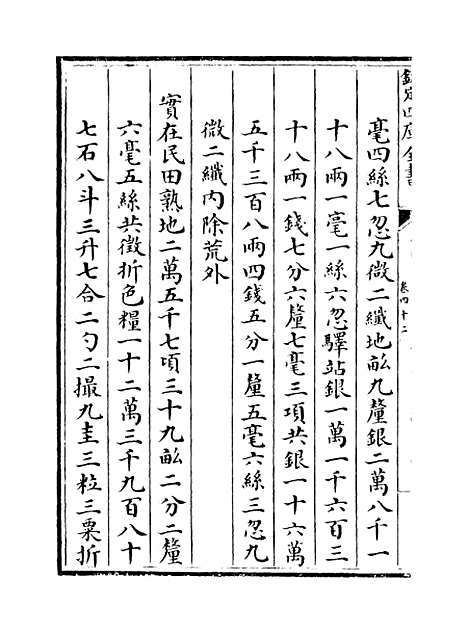 欽定四庫全書
卷四十二
毫四絲七忽九微二纖地畝九釐銀二萬八千一
十八兩一毫一絲六忽驛站銀一萬一千六百三
十八兩一錢七分六釐七毫三項共銀一十六萬
五千三百八兩四錢五分一釐五毫六絲三忽九
微二纖内除荒外
實在民田熟地二萬五千七項三十九畝二分二釐
六毫五絲共徵折色糧一十二萬三千九百八十
七石八斗三升七合二勺二撮九圭三粒三粟折